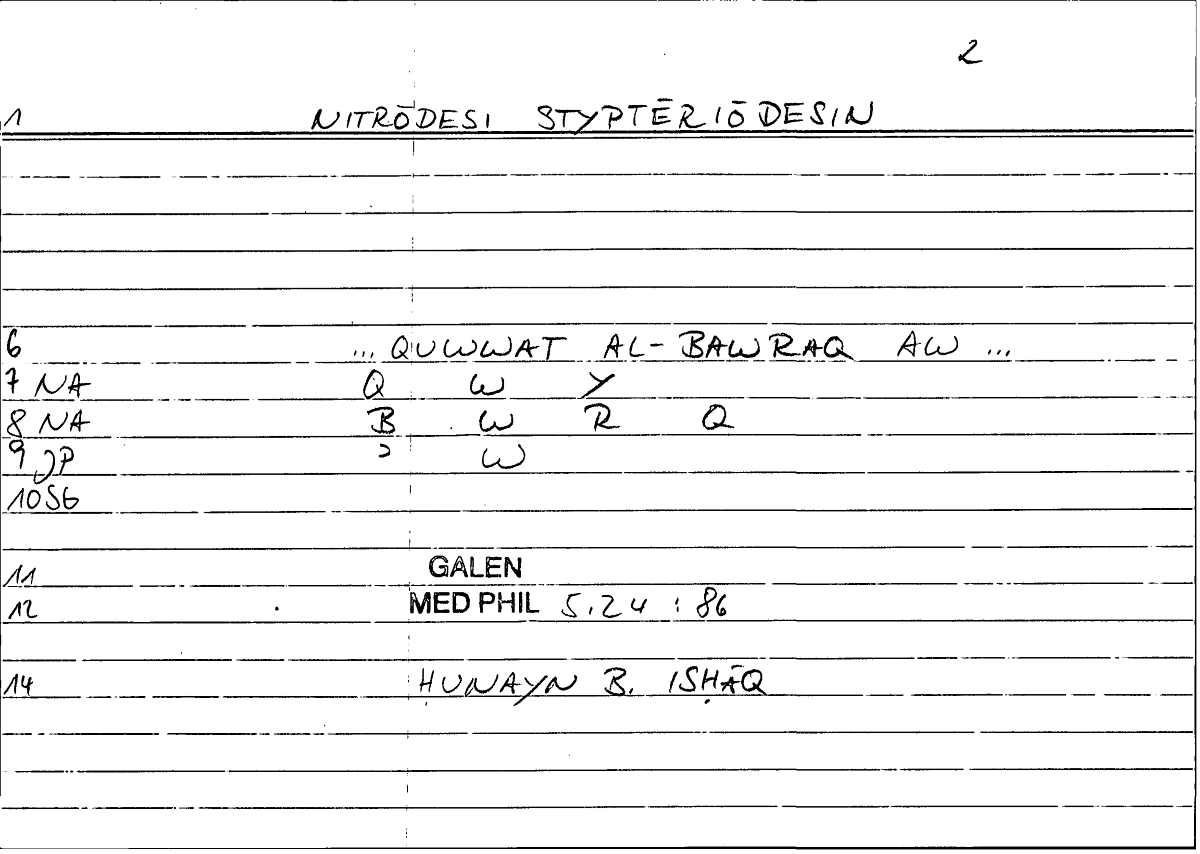 2
1 NITRŌDESI STYPTĒRIŌDESIN
6 ... QUWWAT AL-BAWRAQ AW ...
7 NA Q W Y
8 NA B W R Q
9 JP ʾ W
10 SG
11 GALEN
12 MED PHIL 5.24 : 86
14 ḤUNAYN B. ISḤĀQ